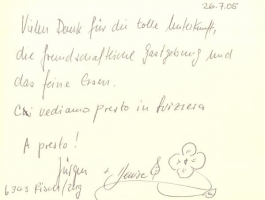 26.7.05
Vielen Dank für die tolle Unterkunft,
die freundschaftliche Gastgebung und
das feine Essen.
Ci vediamo presto in Svizzera
A presto!
Jürgen
6343 Risch/Zug